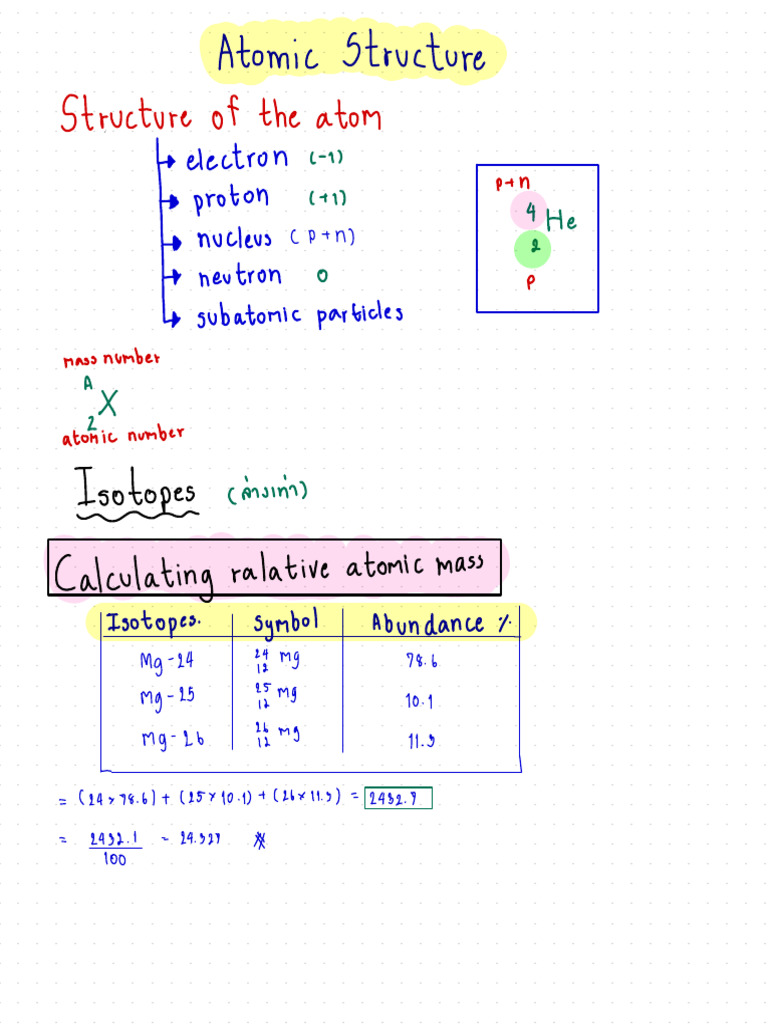 Atomic Structure
Structure of the atom
electron (-1)
proton (+1)
nucleus (p+n)
neutron 0
subatomic particles
p+n
4
He
2
p
mass number
A
X
2
atomic number
Isotopes (ล่างเท่า)
Calculating ralative atomic mass
Isotopes. Symbol Abundance %
Mg-24 24 12 Mg 78.6
Mg-25 25 12 Mg 10.1
Mg-26 26 12 Mg 11.3
= (24 × 78.6) + (25 × 10.1) + (26 × 11.3) = 2432.7
= 2432.1 = 24.327
100